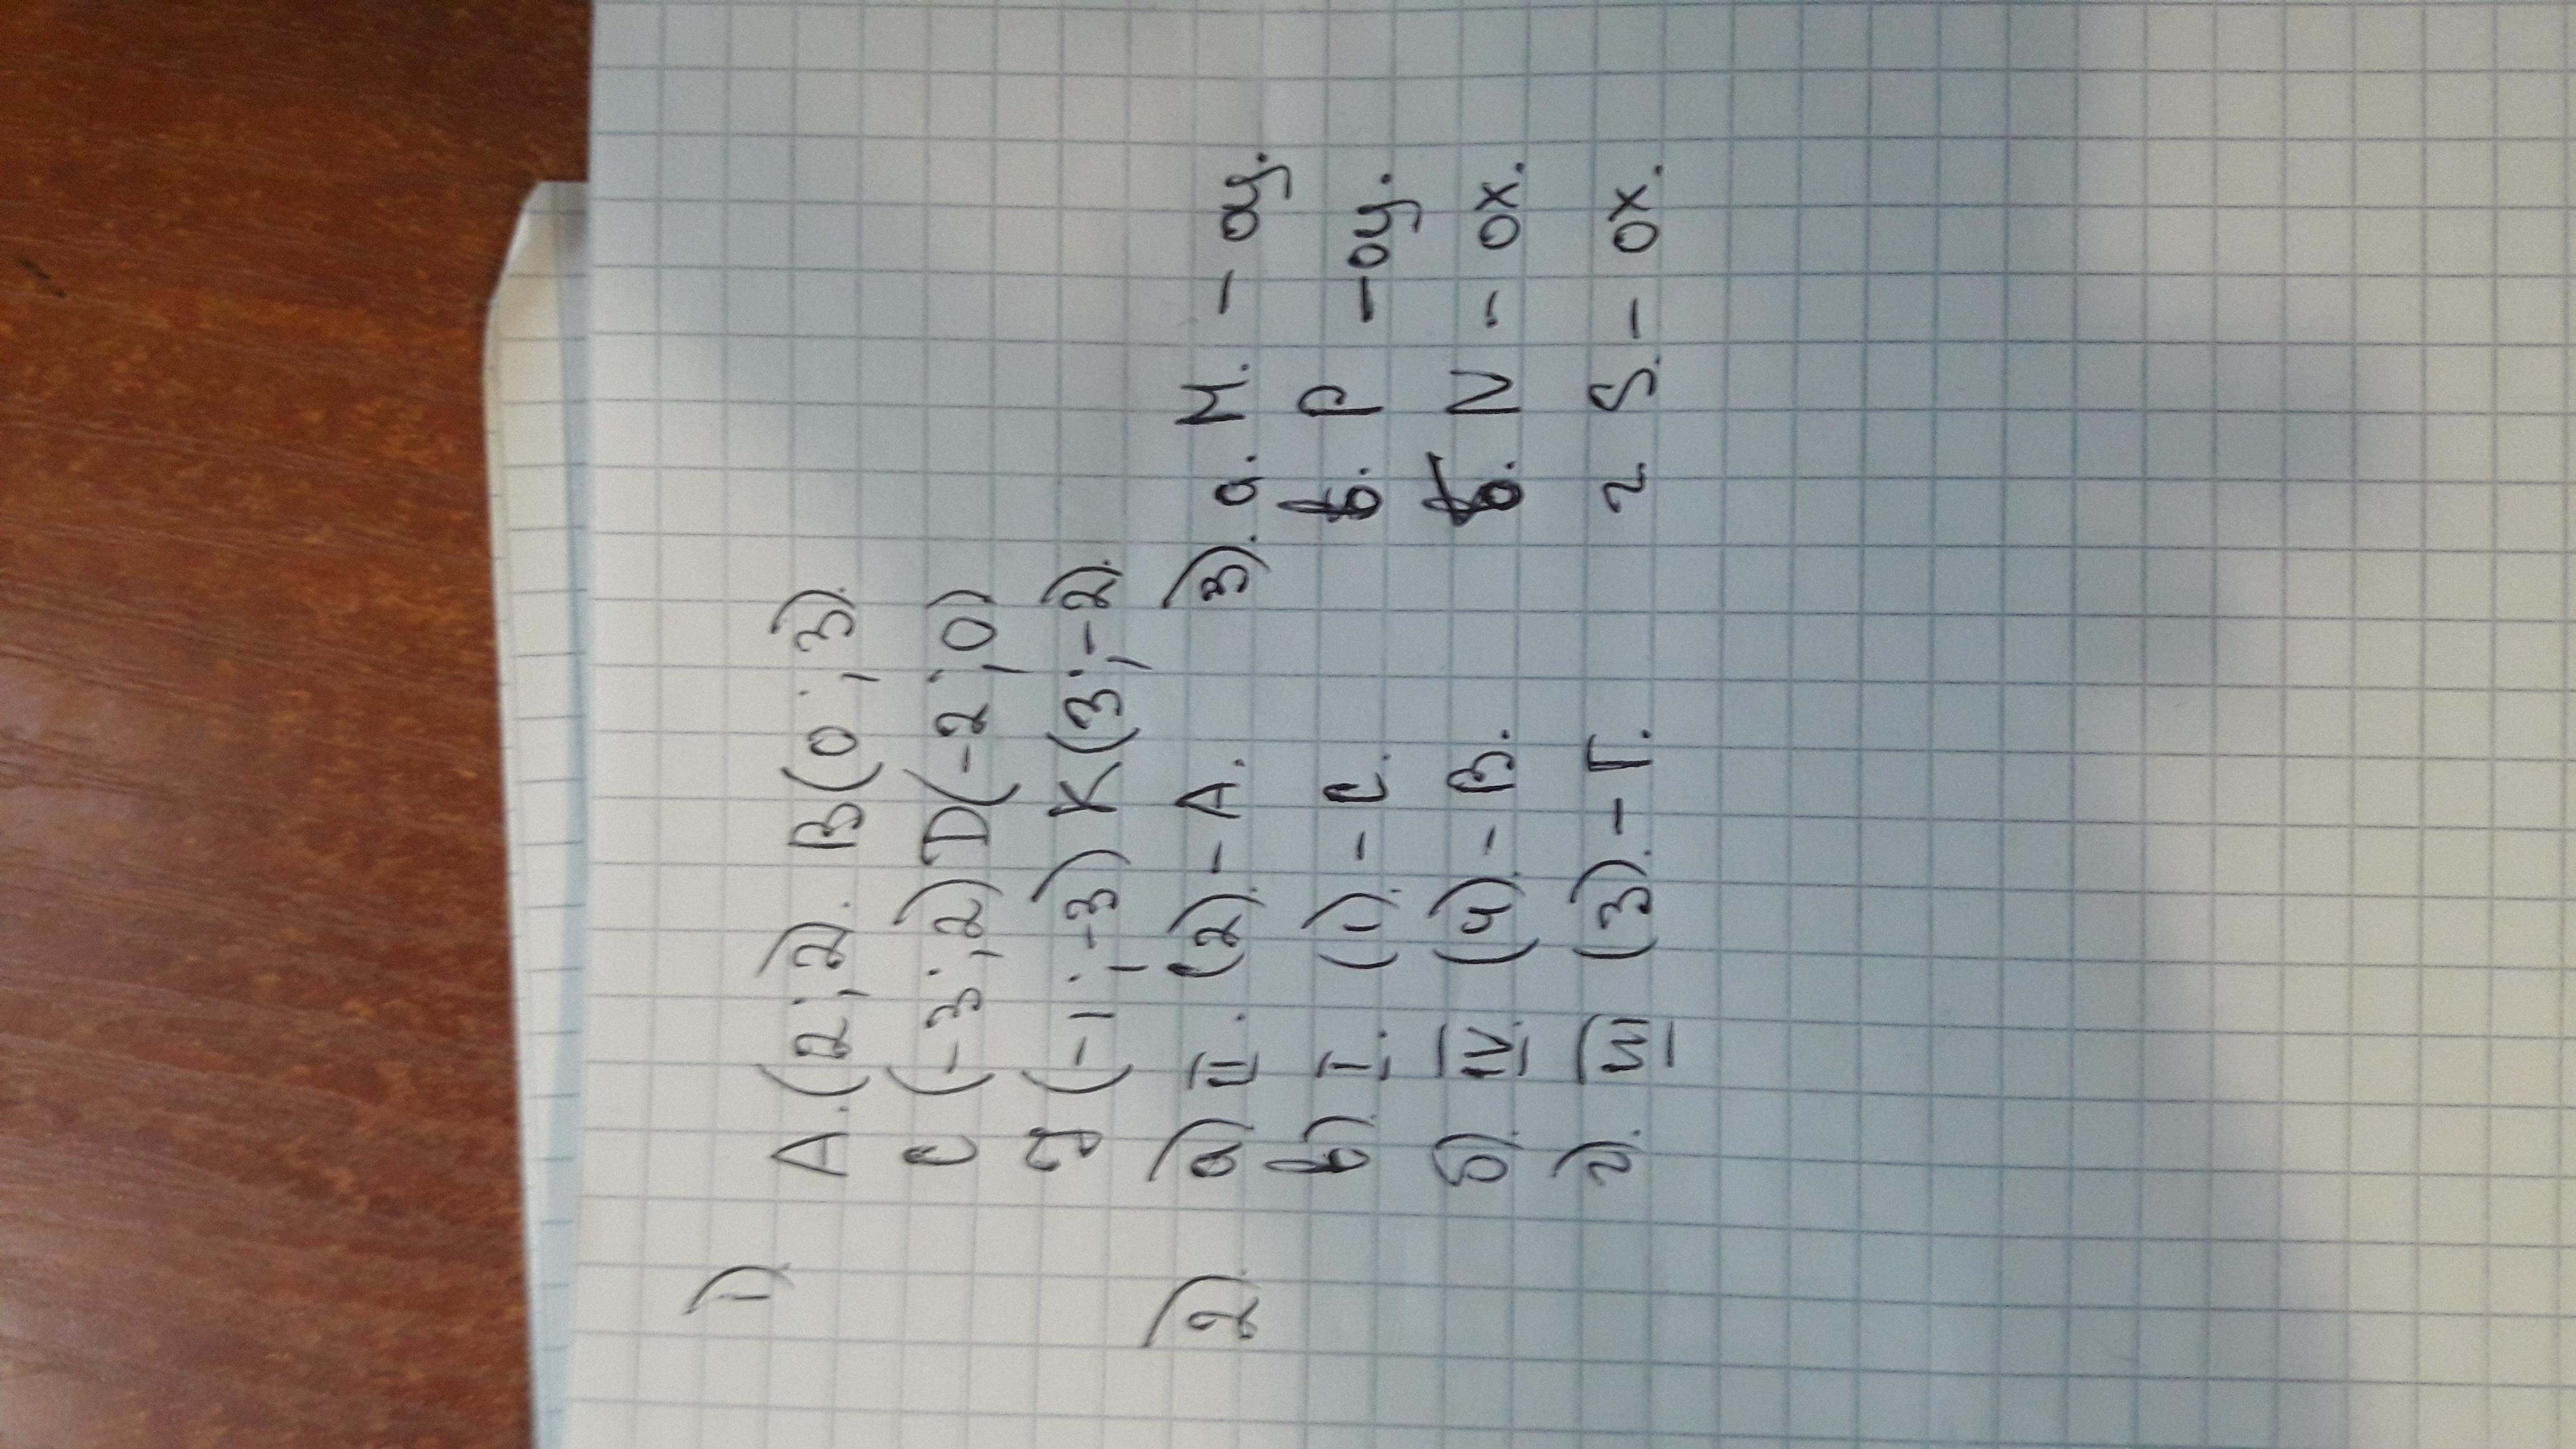 1)
A. (2; 2). B(0; 3).
C (-3; 2) D(-2; 0)
(-1; -3) K(3; -2).
2). а) II. (2). - A. 3). а. M. - oy.
в). I. (1). - C. P - oy.
б). IV. (4). - B. N - ox.
г). III (3). - T. г S. - ox.